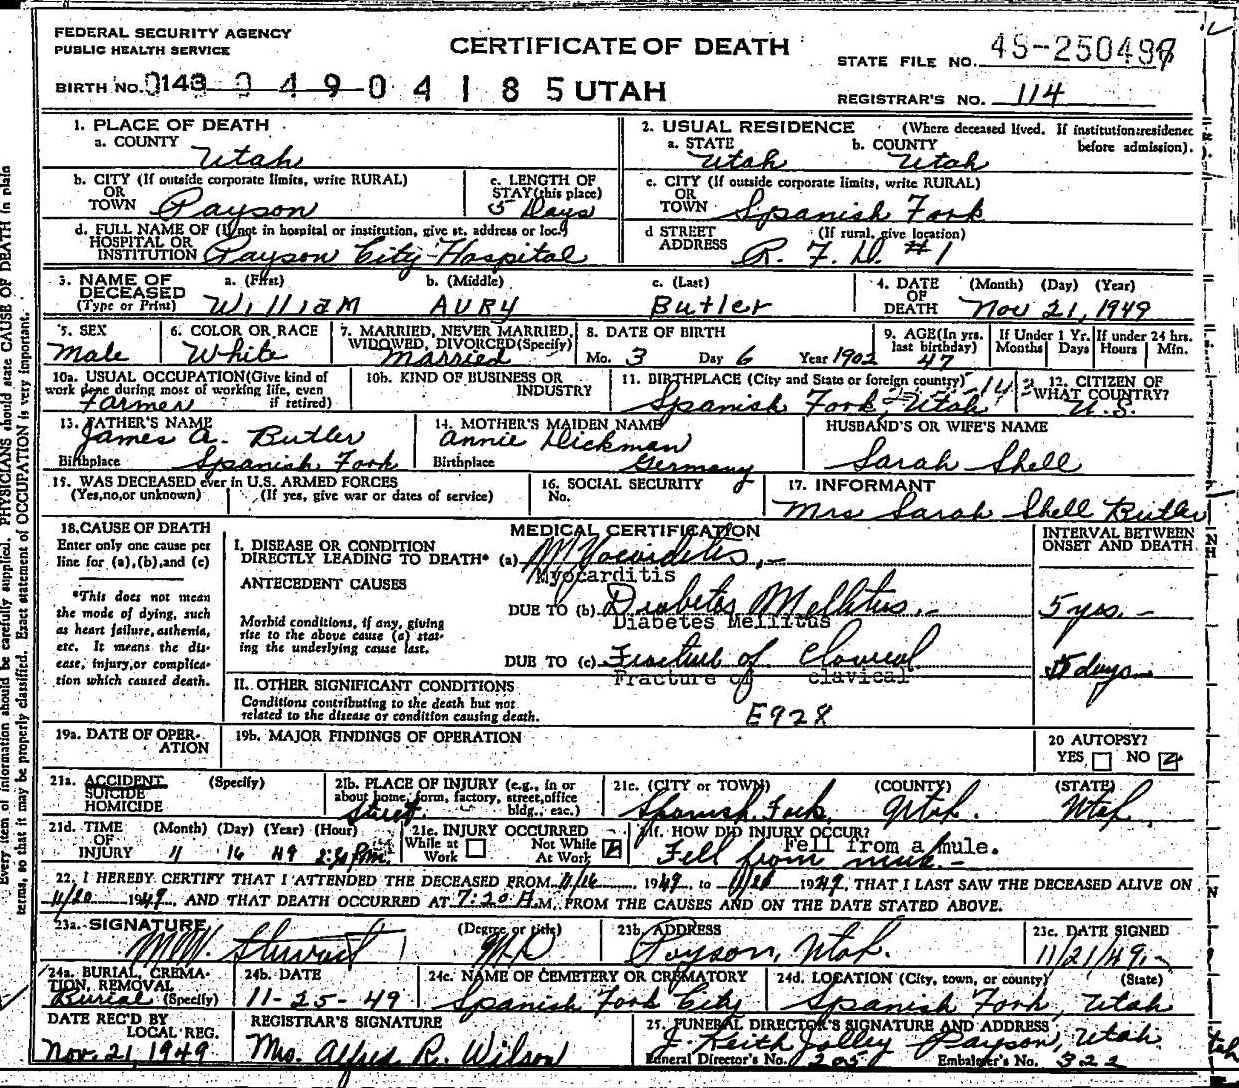 FEDERAL SECURITY AGENCY
PUBLIC HEALTH SERVICE
CERTIFICATE OF DEATH
STATE FILE NO. 49-250497
BIRTH NO. 0143 0 4 9 0 4 1 8 5 UTAH
REGISTRAR'S NO. 114
1. PLACE OF DEATH
a. COUNTY
Utah
2. USUAL RESIDENCE (Where deceased lived. If institution: residence before admission).
a. STATE b. COUNTY
Utah Utah
b. CITY (If outside corporate limits, write RURAL)
OR
TOWN Payson
c. LENGTH OF
STAY (this place)
5 Days
c. CITY (If outside corporate limits, write RURAL)
OR
TOWN Spanish Fork
d. FULL NAME OF (If not in hospital or institution, give st. address or loc.)
HOSPITAL OR
INSTITUTION Payson City Hospital
d STREET (If rural, give location)
ADDRESS R. F. D. #1
3. NAME OF DECEASED (Type or Print)
a. (First) b. (Middle) c. (Last)
William AURY Butler
4. DATE OF DEATH (Month) (Day) (Year)
Nov 21, 1949
5. SEX
Male
6. COLOR OR RACE
White
7. MARRIED, NEVER MARRIED,
WIDOWED, DIVORCED (Specify)
Married
8. DATE OF BIRTH
Mo. 3 Day 6 Year 1902
9. AGE (In yrs. last birthday)
47
If Under 1 Yr. If under 24 hrs.
Months Days Hours Min.
10a. USUAL OCCUPATION (Give kind of
work done during most of working life, even
if retired)
Farmer
10b. KIND OF BUSINESS OR
INDUSTRY
11. BIRTHPLACE (City and State or foreign country)
Spanish Fork, Utah
12. CITIZEN OF
WHAT COUNTRY?
U.S.
13. FATHER'S NAME
James A. Butler
Birthplace Spanish Fork
14. MOTHER'S MAIDEN NAME
Annie Dickman
Birthplace Germany
HUSBAND'S OR WIFE'S NAME
Sarah Shell
15. WAS DECEASED ever in U.S. ARMED FORCES
(Yes, no, or unknown) (If yes, give war or dates of service)
16. SOCIAL SECURITY
No.
17. INFORMANT
Mrs Sarah Shell Butler
18. CAUSE OF DEATH
Enter only one cause per
line for (a), (b), and (c)
*This does not mean
the mode of dying, such
as heart failure, asthenia,
etc. It means the dis-
ease, injury, or complica-
tion which caused death.
MEDICAL CERTIFICATION
INTERVAL BETWEEN
ONSET AND DEATH
I. DISEASE OR CONDITION
DIRECTLY LEADING TO DEATH* (a) Myocarditis,-
Myocarditis
ANTECEDENT CAUSES
DUE TO (b) Diabetes Mellitus.- 5 yrs.-
Diabetes Mellitus
Morbid conditions, if any, giving
rise to the above cause (a) stat-
ing the underlying cause last.
DUE TO (c) Fracture of Clavical 5 days-
Fracture of clavical
II. OTHER SIGNIFICANT CONDITIONS
Conditions contributing to the death but not
related to the disease or condition causing death.
E928
19a. DATE OF OPER-
ATION
19b. MAJOR FINDINGS OF OPERATION
20 AUTOPSY?
YES NO
21a. ACCIDENT (Specify)
SUICIDE
HOMICIDE
21b. PLACE OF INJURY (e.g., in or
about home, farm, factory, street, office
bldg., eac.)
Street
21c. (CITY or TOWN) (COUNTY) (STATE)
Spanish Fork, Utah. Utah
21d. TIME OF INJURY (Month) (Day) (Year) (Hour)
11 16 49
21e. INJURY OCCURRED
While at Work Not While At Work
21f. HOW DID INJURY OCCUR?
Fell from a mule.
Fell from mule.-
22. I HEREBY CERTIFY THAT I ATTENDED THE DECEASED FROM 11/16, 1949, to 11/20 1949, THAT I LAST SAW THE DECEASED ALIVE ON
11/20 1949, AND THAT DEATH OCCURRED AT 7:20 A.M., FROM THE CAUSES AND ON THE DATE STATED ABOVE.
23a. SIGNATURE (Degree or title)
M.W. Stewart MD
23b. ADDRESS
Payson, Utah.
23c. DATE SIGNED
11/21/49.-
24a. BURIAL, CREMA-
TION, REMOVAL
Burial (Specify)
24b. DATE
11-25-49
24c. NAME OF CEMETERY OR CREMATORY
Spanish Fork City
24d. LOCATION (City, town, or county) (State)
Spanish Fork, Utah
DATE REC'D BY
LOCAL REG.
Nov. 21, 1949
REGISTRAR'S SIGNATURE
Mrs. Alfred R. Wilson
25. FUNERAL DIRECTOR'S SIGNATURE AND ADDRESS
J. Keith Jolley Payson, Utah
Funeral Director's No. 205 Embalmer's No. 322
Every item of information should be carefully supplied. PHYSICIANS should state CAUSE OF DEATH in plain
terms, so that it may be properly classified. Exact statement of OCCUPATION is very important.